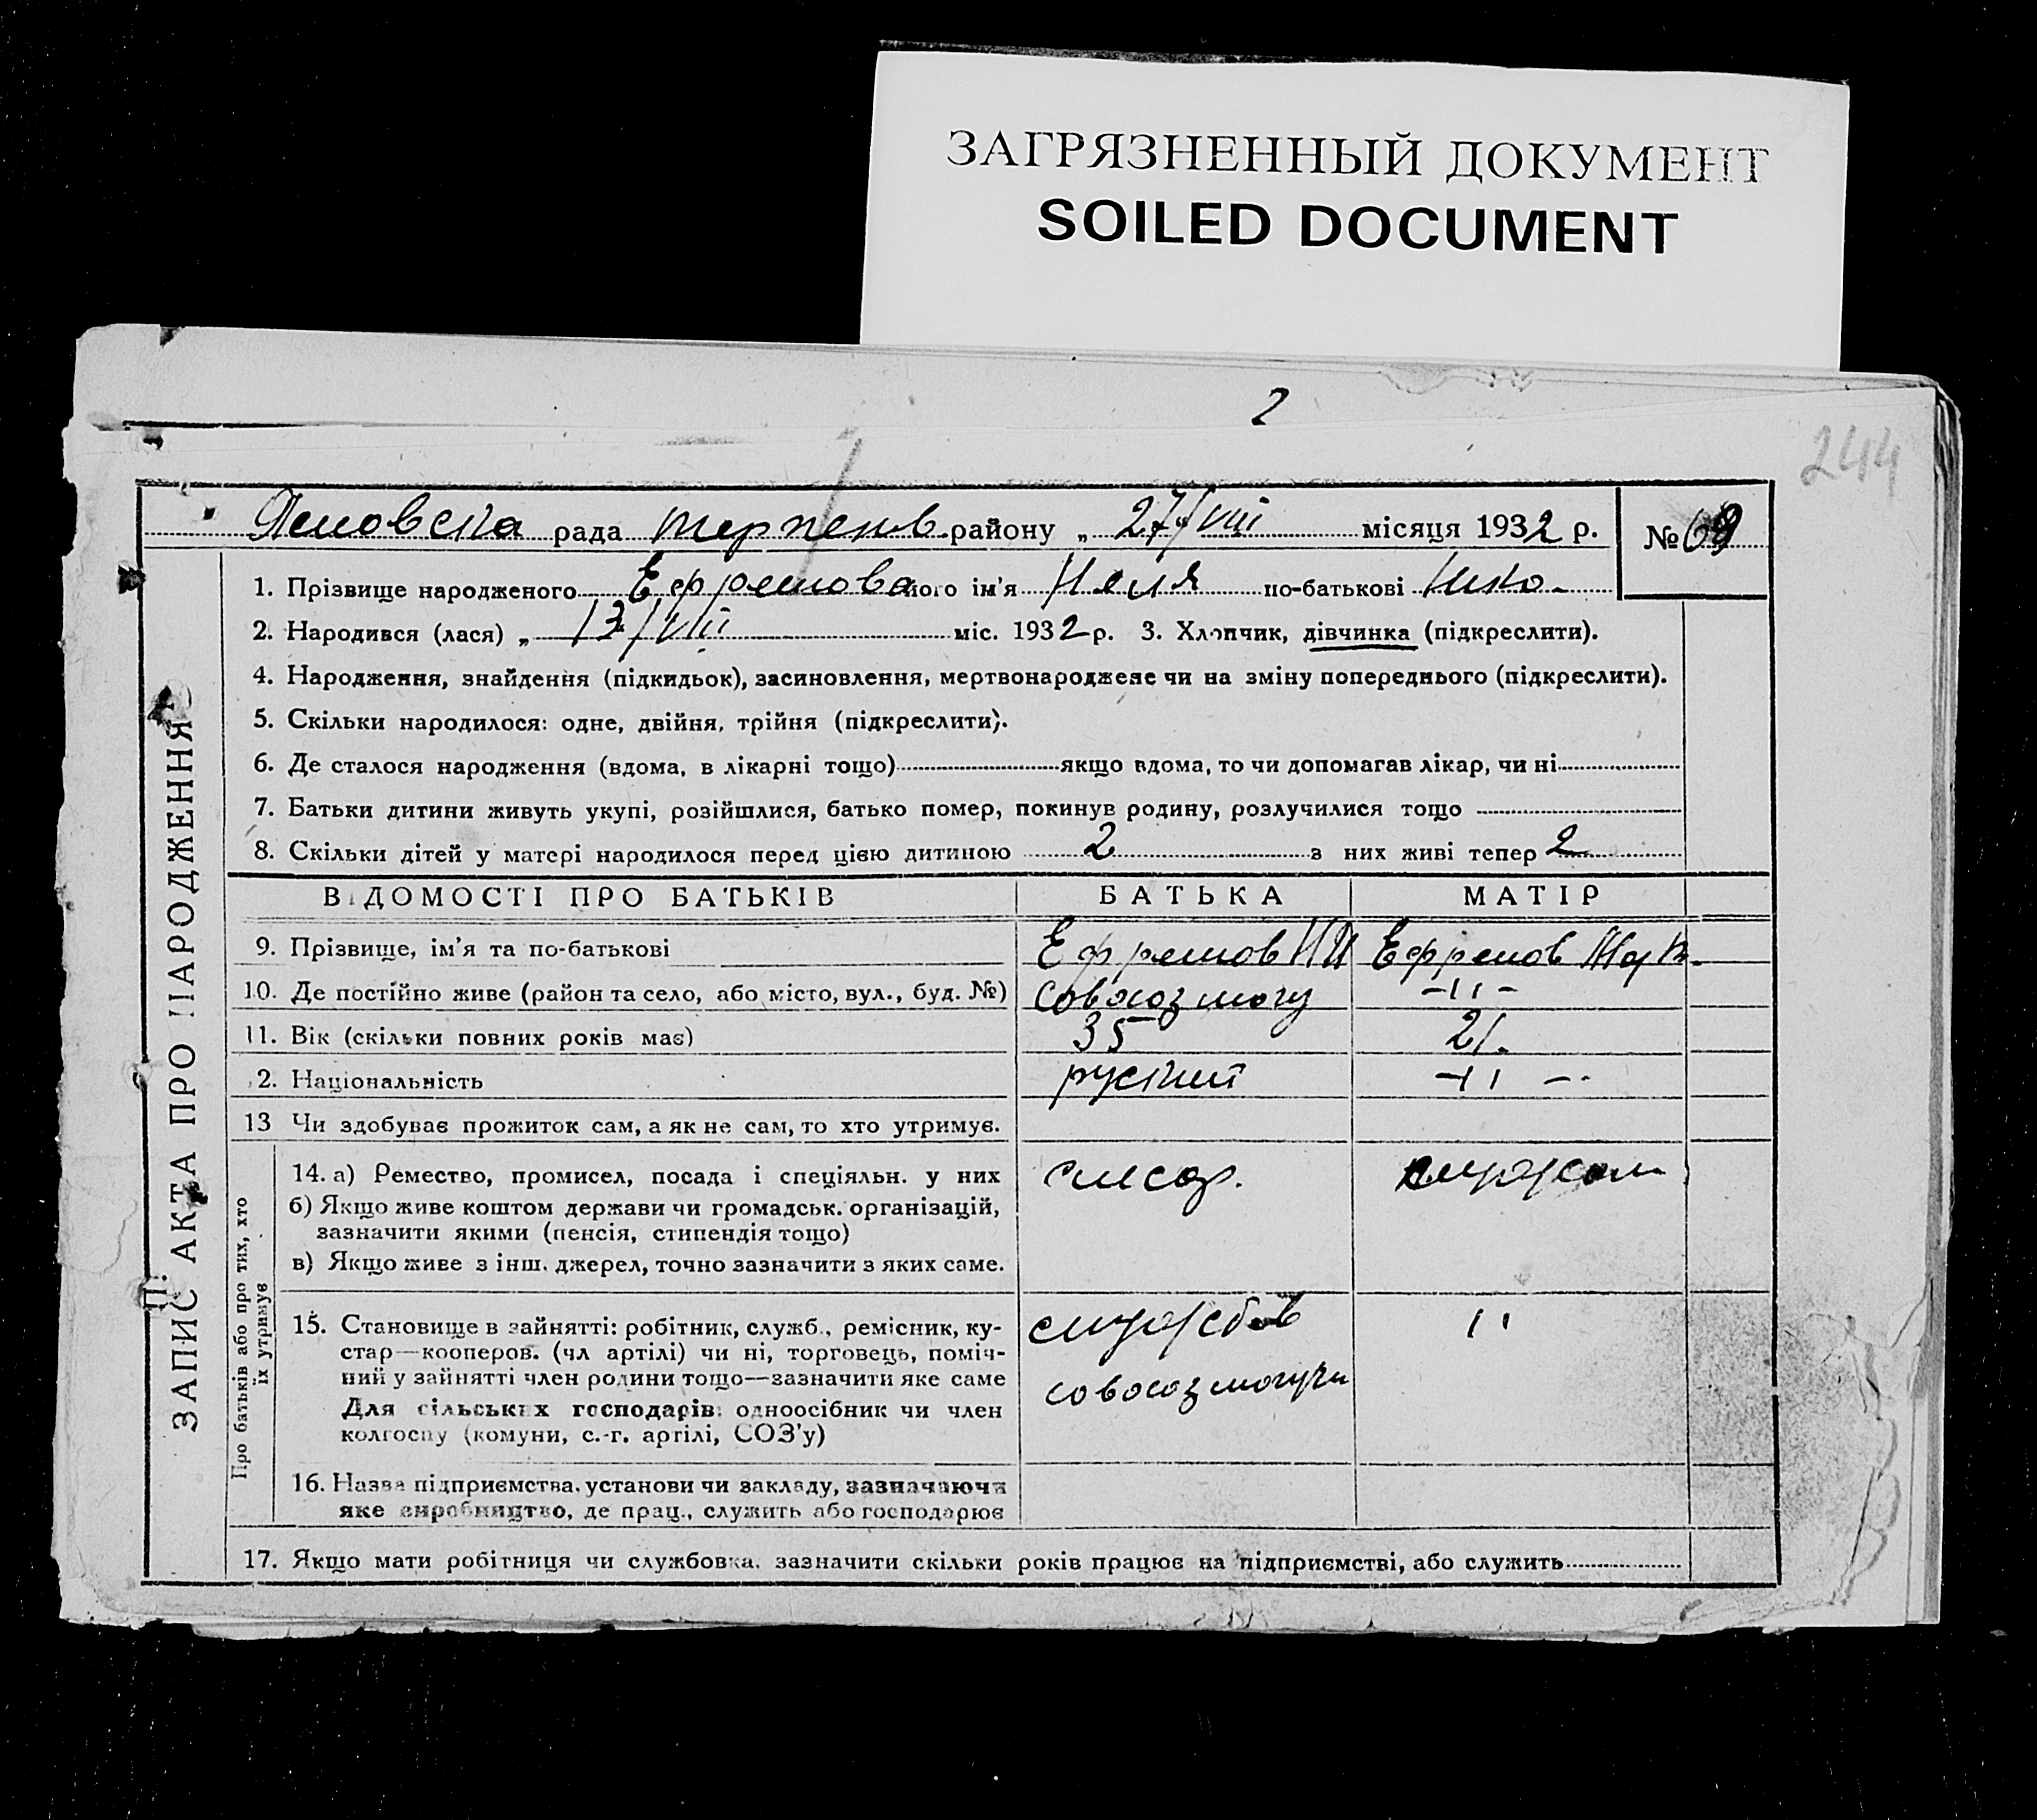 ЗАГРЯЗНЕННЫЙ ДОКУМЕНТ
SOILED DOCUMENT
2
244
рада терпенів. району „ 27/VIII місяця 1932 р. № 69
ЗАПИС АКТА ПРО НАРОДЖЕННЯ
1. Прізвище народженого Ефремова його ім'я Неля по-батькові Нико-
2. Народився (лася) „ 13/VIII міс. 1932 р. 3. Хлопчик, дівчинка (підкреслити).
4. Народження, знайдення (підкидьок), засиновлення, мертвонароджене чи на зміну попереднього (підкреслити).
5. Скільки народилося: одне, двійня, трійня (підкреслити).
6. Де сталося народження (вдома, в лікарні тощо) якщо вдома, то чи допомагав лікар, чи ні
7. Батьки дитини живуть укупі, розійшлися, батько помер, покинув родину, розлучилися тощо
8. Скільки дітей у матері народилося перед цією дитиною 2 з них живі тепер 2
ВІДОМОСТІ ПРО БАТЬКІВ БАТЬКА МАТІР
9. Прізвище, ім'я та по-батькові Ефремов Ефремов
10. Де постійно живе (район та село, або місто, вул., буд. №) -11-
11. Вік (скільки повних років має) 35 21.
12. Національність руский -11-
13 Чи здобуває прожиток сам, а як не сам, то хто утримує.
Про батьків або про тих, хто
їх утримує
14. а) Ремество, промисел, посада і спеціяльн. у них слесар.
б) Якщо живе коштом держави чи громадськ. організацій,
зазначити якими (пенсія, стипендія тощо)
в) Якщо живе з інш. джерел, точно зазначити з яких саме.
15. Становище в зайнятті: робітник, служб., ремісник, ку-
стар—кооперов. (чл артілі) чи ні, торговець, поміч-
ний у зайнятті член родини тощо—зазначити яке саме
Для сільських господарів: одноосібник чи член
колгоспу (комуни, с.-г. артілі, СОЗ'у)
службов 11
16. Назва підприємства, установи чи закладу, зазначаючи
яке виробництво, де прац., служить або господарює
17. Якщо мати робітниця чи службовка, зазначити скільки років працює на підприємстві, або служить